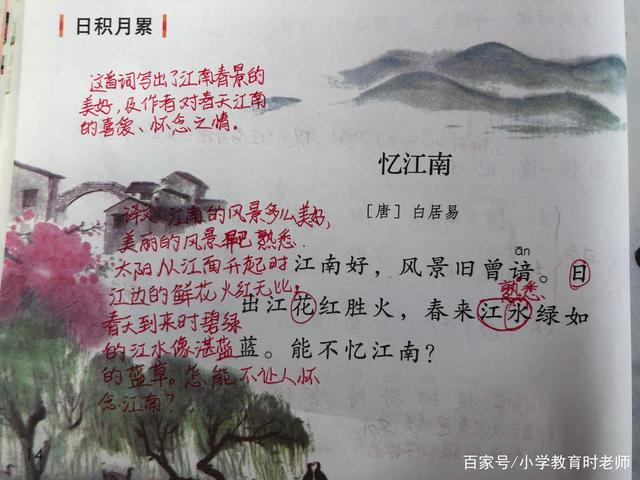 日积月累
这首词写出了江南春景的
美好,及作者对春天江南
的喜爱、怀念之情。
忆江南
[唐] 白居易
译文:江南的风景多么美好,
美丽的风景早已熟悉.
ān
太阳从江面升起时
江南好,风景旧曾谙。日
熟悉
江边的鲜花火红无比,
出江花红胜火,春来江水绿如
春天到来时碧绿
的江水像湛蓝
蓝。能不忆江南?
的蓝草。怎能不让人怀
念江南?
4
百家号/小学教育时老师